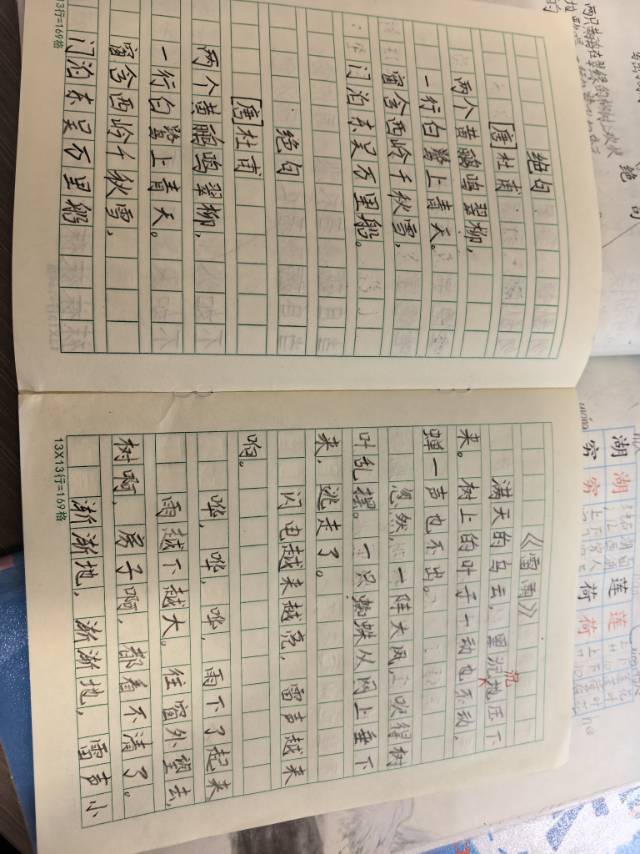 绝句
[唐]杜甫
两个黄鹂鸣翠柳,
一行白鹭上青天。
窗含西岭千秋雪,
门泊东吴万里船。
绝句
[唐]杜甫
两个黄鹂鸣翠柳,
一行白鹭上青天。
窗含西岭千秋雪,
门泊东吴万里船
13行=169格
《雷雨》
满天的乌云,黑沉沉地压下
来。树上的叶子一动也不动。
蝉一声也不出。
忽然,一阵大风,吹得树
叶乱摆。一只蜘蛛从网上垂下
来,逃走了。
闪电越来越亮,雷声越来
响。
哗,哗,哗,雨下了起来
雨越下越大。往窗外望去
树啊,房子啊,都看不清了。
渐渐地,渐渐地,雷声小
13X13行=169格
绝句
湖 湖 莲 莲
穷 穷 荷 荷